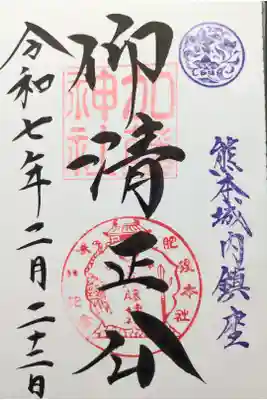 熊本城内鎮座
仰清正公
加藤神社
令和七年二月二十二日